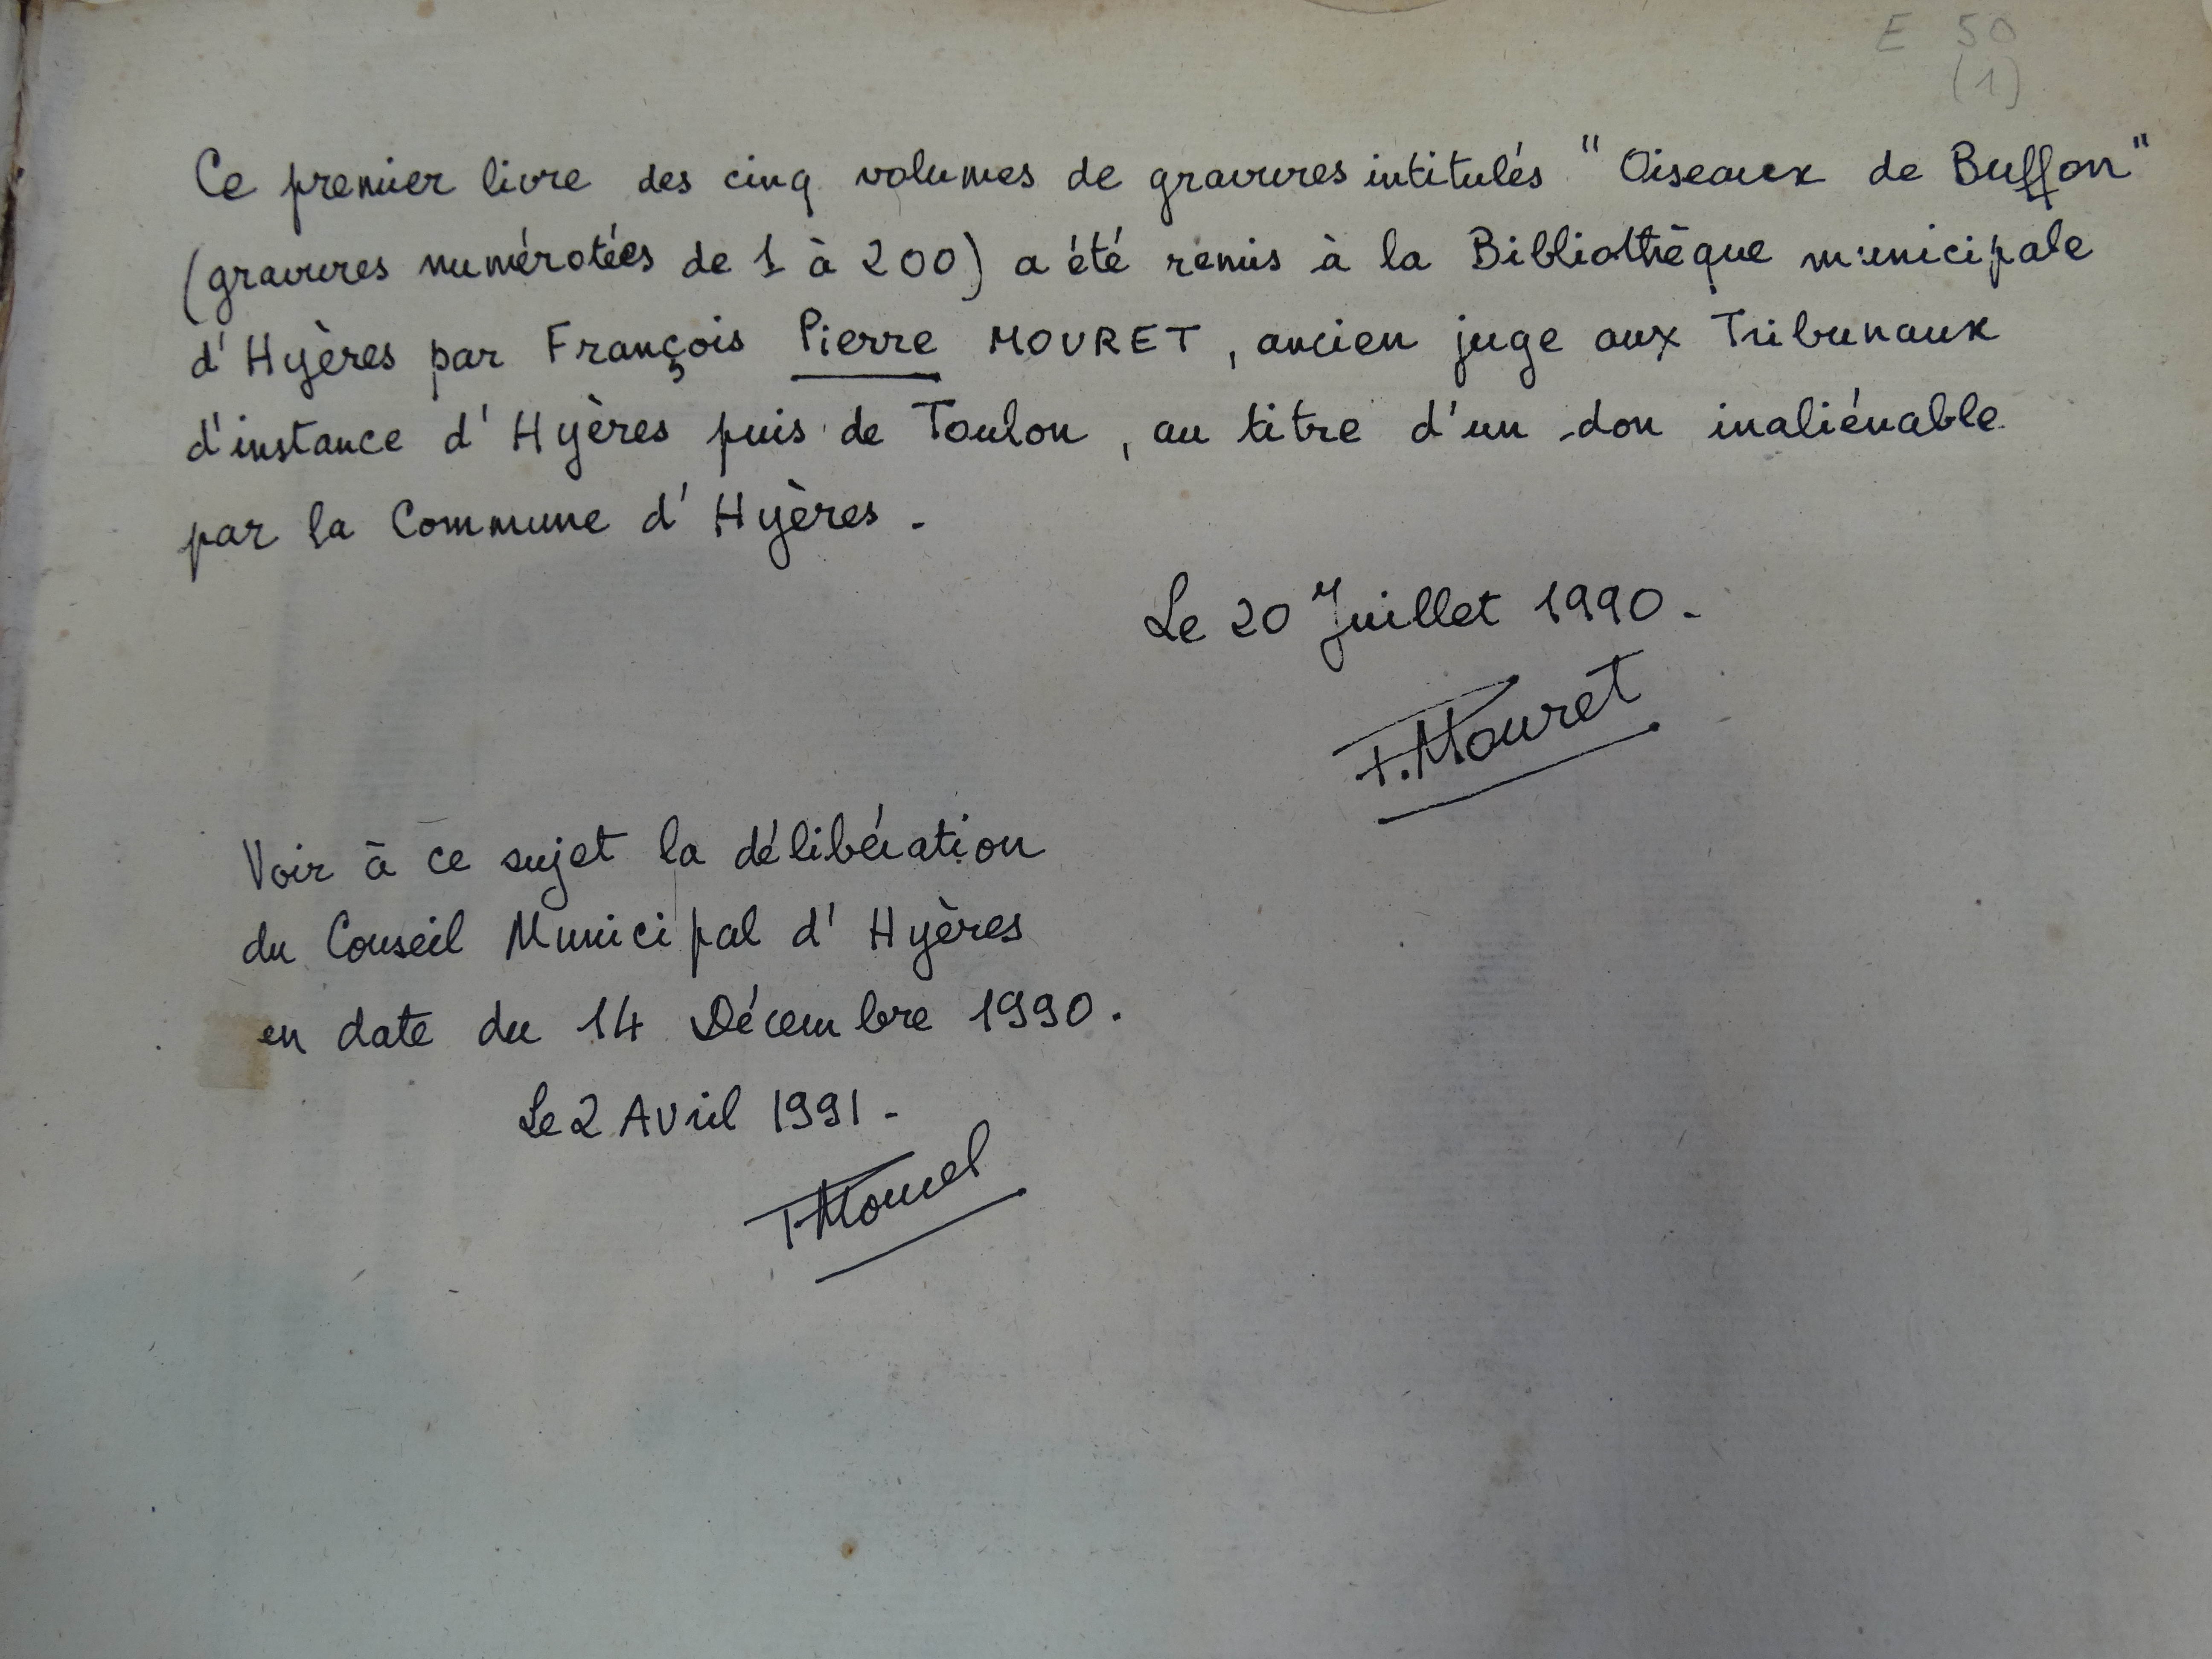 E 50
(1)
Ce premier livre des cinq volumes de gravures intitulés "Oiseaux de Buffon"
(gravures numérotées de 1 à 200) a été remis à la Bibliothèque municipale
d'Hyères par François Pierre MOURET, ancien juge aux Tribunaux
d'instance d'Hyères puis de Toulon, au titre d'un don inaliénable
par la Commune d'Hyères.
Le 20 Juillet 1990.
F. Mouret
Voir à ce sujet la délibération
du Conseil Municipal d'Hyères
en date du 14 Décembre 1990.
Le 2 Avril 1991.
F. Mouret